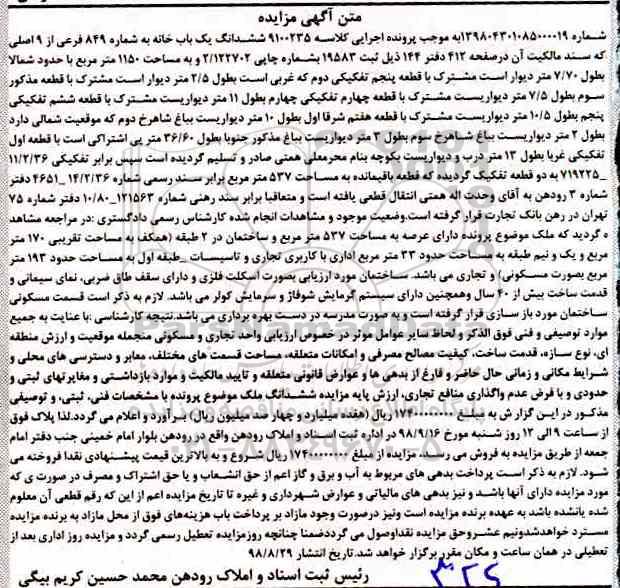 متن آگهی مزایده
شماره ۱۳۹۸۰۴۳۰۱۰۸۵۰۰۰۰۱۹به موجب پرونده اجرایی کلاسه ۹۱۰۰۲۳۵ ششدانگ یک باب خانه به شماره ۸۴۹ فرعی از ۹ اصلی
که سند مالکیت آن درصفحه ۴۱۲ دفتر ۱۴۴ ذیل ثبت ۱۹۵۸۳ بشماره چاپی ۲/۱۲۲۷۰۲ و به مساحت ۱۱۵۰ متر مربع با حدود شمالا
بطول ۷/۷۰ متر دیوار است مشترک با قطعه پنجم تفکیکی دوم که غربی است بطول ۲/۵ متر دیوار است مشترک با قطعه مذکور
سوم بطول ۷/۵ متر دیواریست مشترک با قطعه چهارم تفکیکی چهارم بطول ۱۱ متر دیواریست مشترک با قطعه ششم تفکیکی
پنجم بطول ۱۰/۵ متر دیواریست مشترک با قطعه هفتم شرقا اول بطول ۱۰ متر دیواریست بباغ شاهرخ دوم که موقعیت شمالی دارد
بطول ۲ متر دیواریست بباغ شاهرخ سوم بطول ۳ متر دیواریست بباغ مذکور جنوبا بطول ۳۶/۶۰ متر پی اشتراکی است با قطعه اول
تفکیکی غربا بطول ۱۳ متر درب و دیواریست بکوچه بنام محرمعلی همتی صادر و تسلیم گردیده است سپس برابر تفکیکی ۱۱/۲/۳۶
_۷۱۹۲۲۵ به دو قطعه تفکیک گردیده که قطعه باقیمانده به مساحت ۵۳۷ متر مربع برابر سند رسمی شماره ۱۴/۲/۳۶ _۴۶۵۱ دفتر
شماره ۳ رودهن به آقای وحدت اله همتی انتقال قطعی یافته است و متعاقبا برابر سند رهنی شماره ۱۲۱۵۶۳_۱۰/۸۰ دفتر شماره ۷۵
تهران در رهن بانک تجارت قرار گرفته است.وضعیت موجود و مشاهدات انجام شده کارشناس رسمی دادگستری :در مراجعه مشاهد
ه گردید که ملک موضوع پرونده دارای عرصه به مساحت ۵۳۷ متر مربع و ساختمان در ۲ طبقه (همکف به مساحت تقریبی ۱۷۰ متر
مربع و یک و نیم طبقه به مساحت حدود ۳۳ متر مربع اداری با کاربری تجاری و تاسیسات _طبقه اول به مساحت حدود ۱۹۳ متر
مربع بصورت مسکونی) و تجاری می باشد. ساختمان مورد ارزیابی بصورت اسکلت فلزی و دارای سقف طاق ضربی، نمای سیمانی و
قدمت ساخت بیش از ۴۰ سال وهمچنین دارای سیستم گرمایش شوفاژ و سرمایش کولر می باشد. لازم به ذکر است قسمت مسکونی
ساختمان مورد باز سازی قرار گرفته است و به صورت مدرسه در دست بهره برداری می باشد.نتیجه کارشناسی :با عنایت به جمیع
موارد توصیفی و فنی فوق الذکر و لحاظ سایر عوامل موثر در خصوص ارزیابی واحد تجاری و مسکونی منجمله موقعیت و ارزش منطقه
ای، نوع سازه، قدمت ساخت، کیفیت مصالح مصرفی و امکانات متعلقه، مساحت قسمت های مختلف، معابر و دسترسی های محلی و
شرایط مکانی و زمانی حال حاضر و فارغ از بدهی ها و عوارض قانونی متعلقه و تایید مالکیت و موارد بازداشتی و مغایرتهای ثبتی و
حدودی و با فرض عدم واگذاری منافع تجاری، ارزش پایه مزایده ششدانگ ملک موضوع پرونده با مشخصات فنی، ثبتی، و توصیفی
مذکور در این گزارش به مبلغ ۱۷۴۰۰۰۰۰۰۰۰ ریال (هفده میلیارد و چهار صد میلیون ریال) برآورد و اعلام می گردد.لذا پلاک فوق
از ساعت ۹ الی ۱۲ روز شنبه مورخ ۹۸/۹/۱۶ در اداره ثبت اسناد و املاک رودهن واقع در رودهن بلوار امام خمینی جنب دفتر امام
جمعه از طریق مزایده به فروش می رسد. مزایده از مبلغ ۱۷۴۰۰۰۰۰۰۰۰ ریال شروع و به بالاترین قیمت پیشنهادی نقدا فروخته می
شود. لازم به ذکر است پرداخت بدهی های مربوط به آب و برق و گاز اعم از حق انشعاب و یا حق اشتراک و مصرف در صورت ی که
مورد مزایده دارای آنها باشد و نیز بدهی های مالیاتی و عوارض شهرداری و غیره تا تاریخ مزایده اعم از این که رقم قطعی آن معلوم
شده یانشده باشد به عهده برنده مزایده است ونیز درصورت وجود مازاد بر پرداخت باب هزینه‌های فوق از محل مازاد به برنده مزایده
مسترد خواهدشدونیم عشروحق مزایده نقداوصول می گرددضمنا چنانچه روزمزایده تعطیل رسمی گردد و مزایده روز اداری بعد از
تعطیلی در همان ساعت و مکان مقرر برگزار خواهد شد.تاریخ انتشار ۹۸/۸/۲۹
رئیس ثبت اسناد و املاک رودهن محمد حسین کریم بیگی